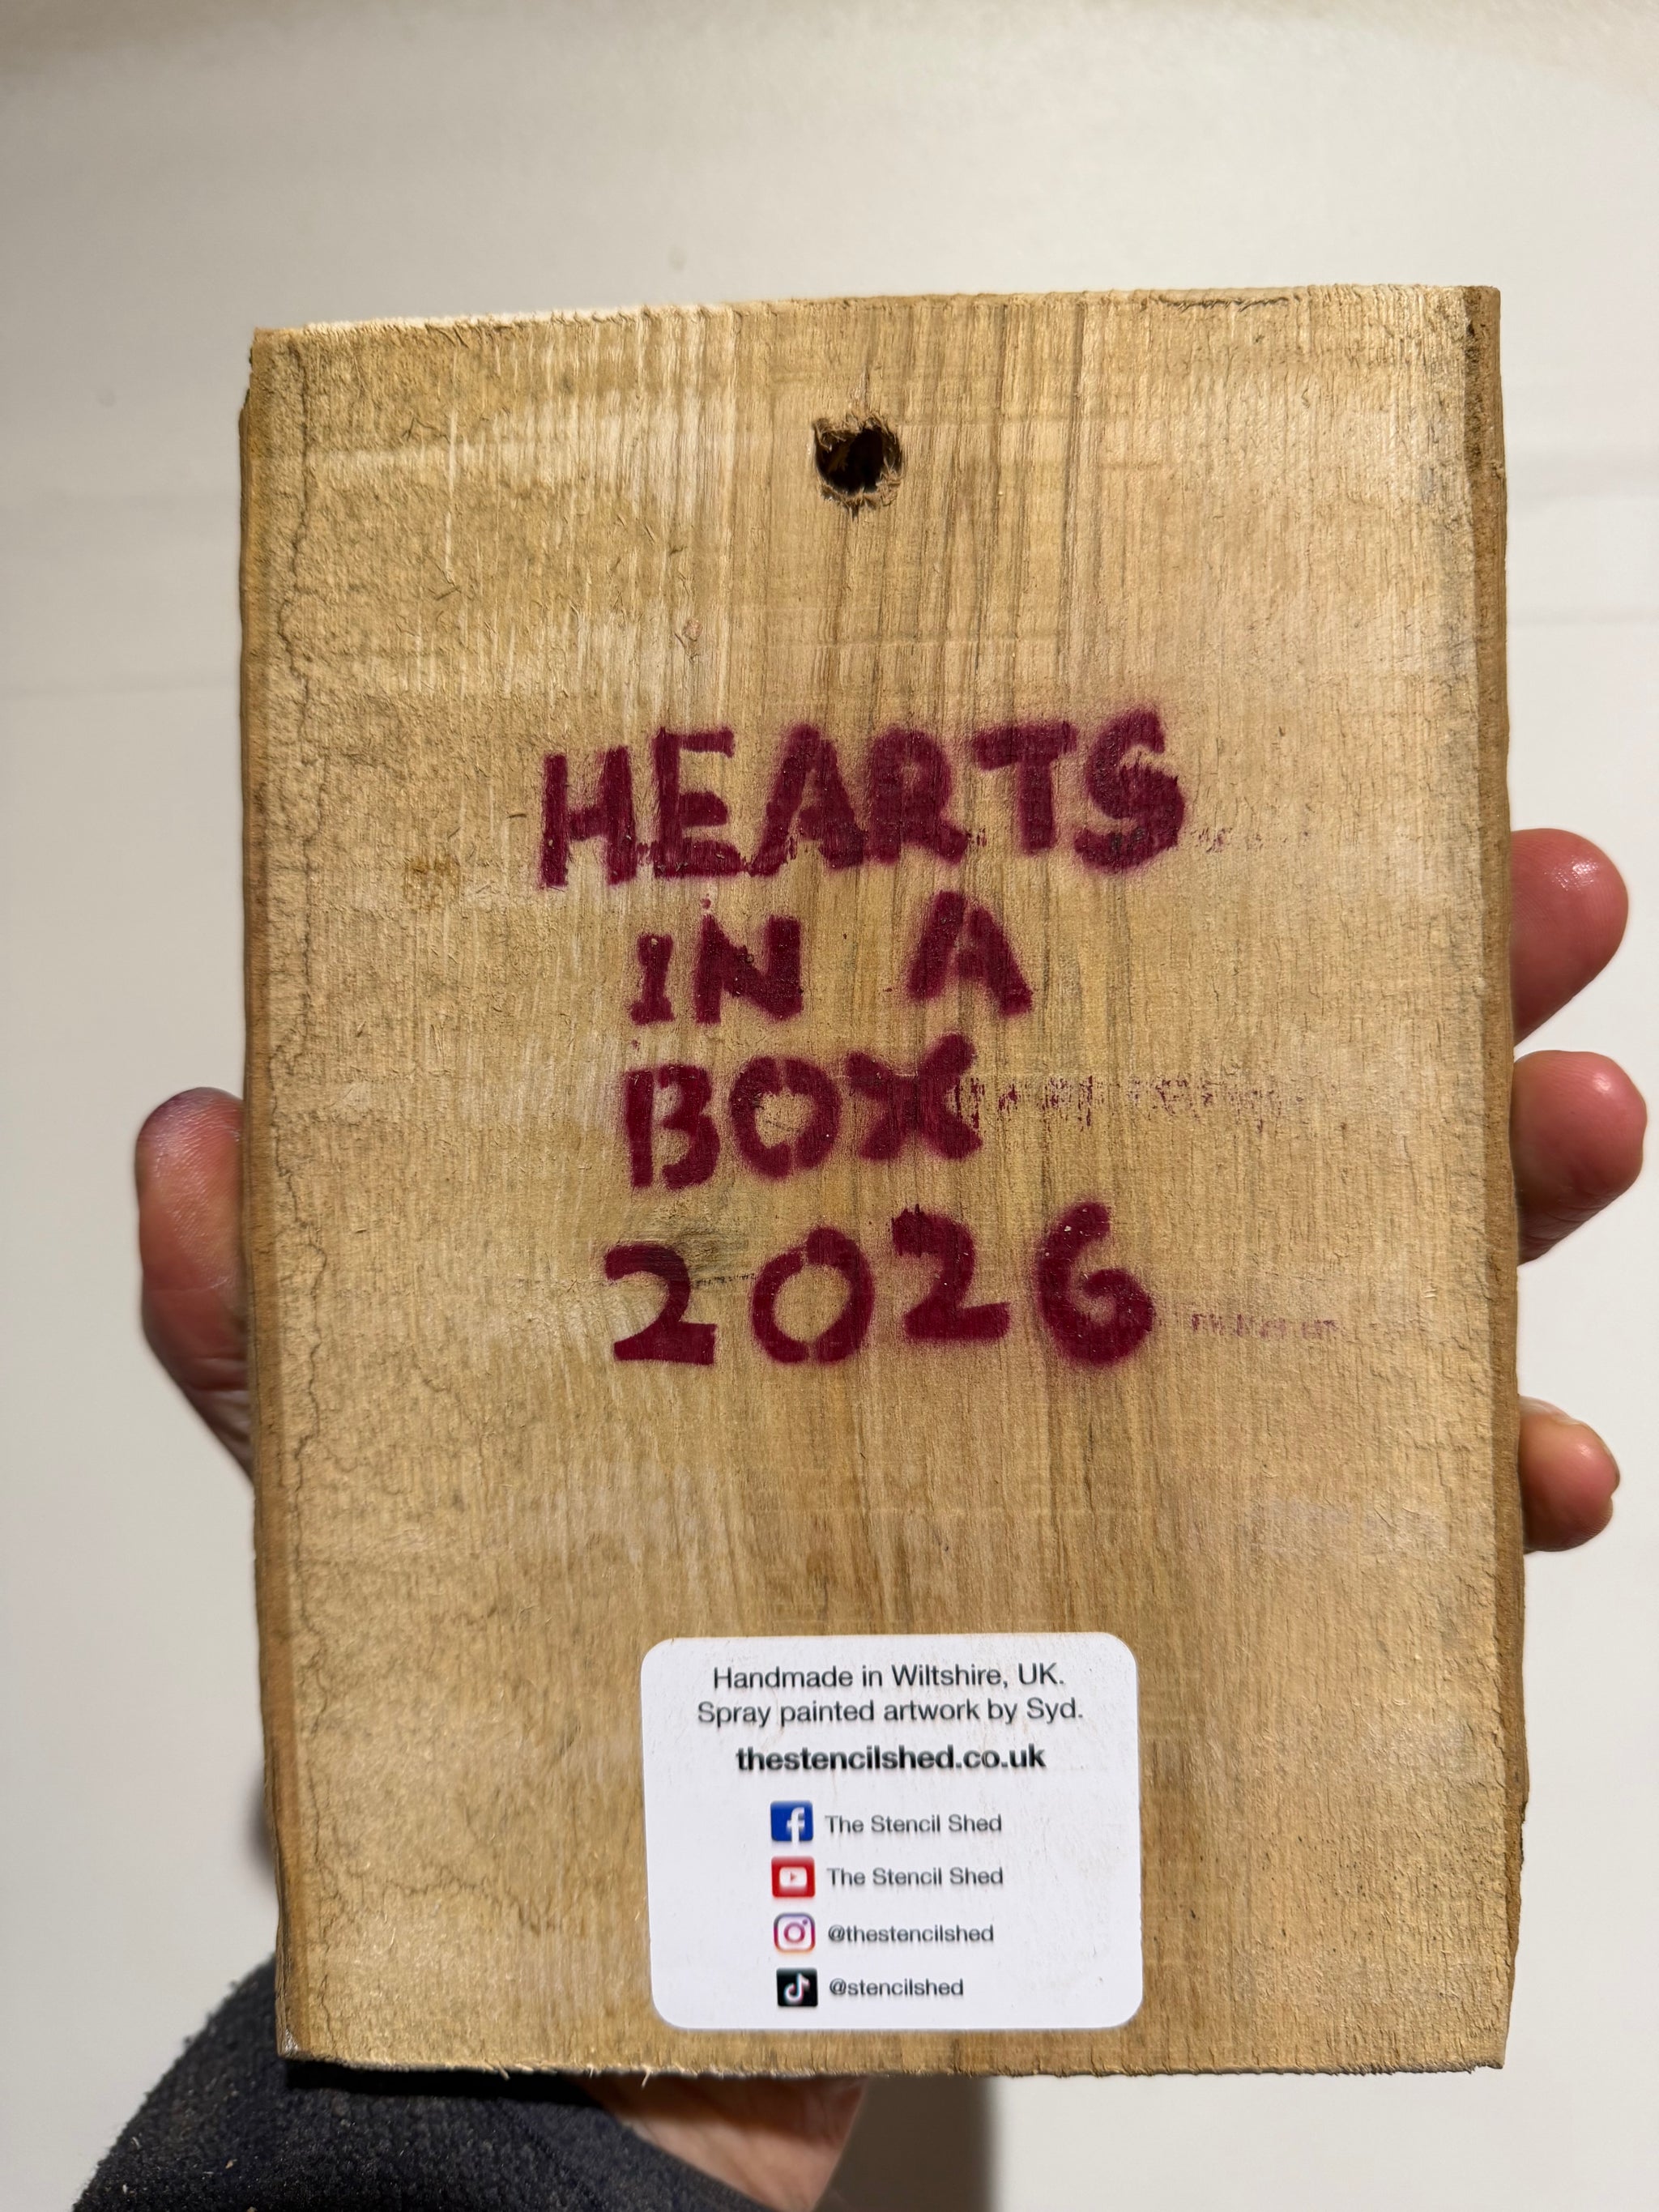 HEARTS
IN A
BOX
2026
Handmade in Wiltshire, UK.
Spray painted artwork by Syd.
thestencilshed.co.uk
The Stencil Shed
The Stencil Shed
@thestencilshed
@stencilshed